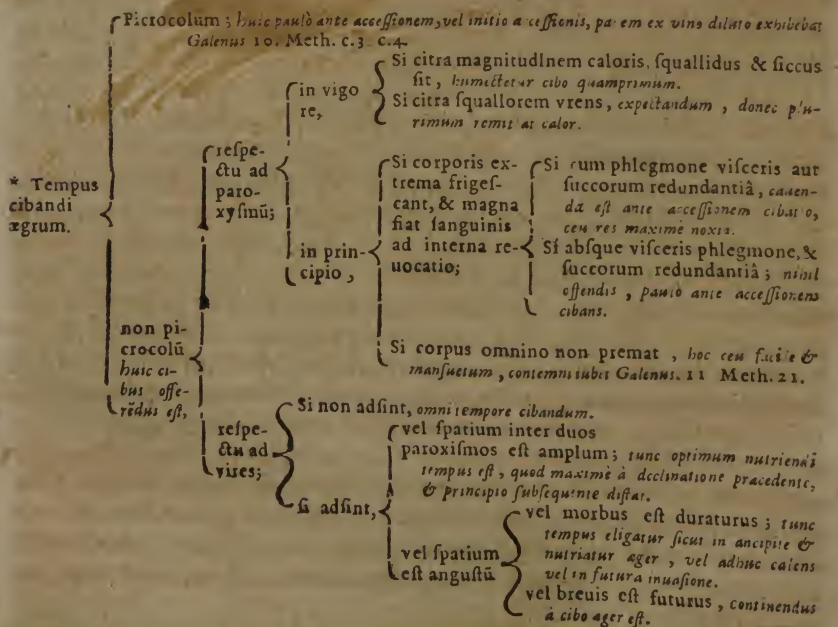 Picrocolum ; huic paulò ante accessionem, vel initio accessionis, panem ex vino diluto exhibebat
Galenus 10. Meth. c.3 c.4.
* Tempus
cibandi
ægrum.
non pi-
crocolū
huic ci-
bus offe-
rēdus est,
respe-
ctu ad
paro-
xysmū;
in vigo
re,
Si citra magnitudinem caloris, squallidus & siccus
sit, humectetur cibo quamprimum.
Si citra squallorem vrens, expectandum , donec plu-
rimum remittat calor.
in prin-
cipio ,
Si corporis ex-
trema friges-
cant, & magna
fiat sanguinis
ad interna re-
uocatio;
Si cum phlegmone visceris aut
succorum redundantiâ, cauen-
da est ante accessionem cibatio,
ceu res maximè noxia.
Si absque visceris phlegmone, &
succorum redundantiâ ; nihil
offendis , paulò ante accessionem
cibans.
Si corpus omnino non premat , hoc ceu facile &
mansuetum , contemni iubet Galenus. 11 Meth. 21.
respe-
ctu ad
vires;
Si non adsint, omni tempore cibandum.
si adsint,
vel spatium inter duos
paroxismos est amplum ; tunc optimum nutriendi
tempus est , quod maximè à declinatione præcedente,
& principio subsequente distat.
vel spatium
est angustū
vel morbus est duraturus ; tunc
tempus eligatur sicut in ancipite &
nutriatur æger , vel adhuc calens
vel in futura inuasione.
vel breuis est futurus , continendus
à cibo æger est.